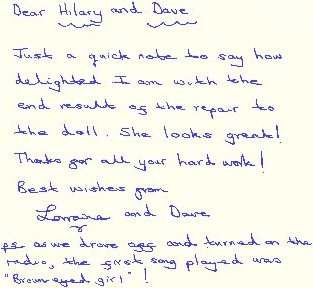 Dear Hilary and Dave
Just a quick note to say how
delighted I am with the
end results of the repair to
the doll. She looks great!
Thanks for all your hard work!
Best wishes from
Lorraine and Dave
ps as we drove off and turned on the
radio, the first song played was
"Brown eyed girl"!